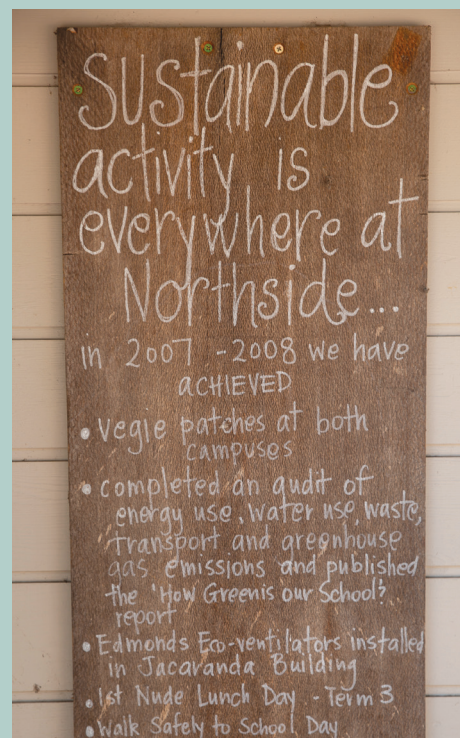 Sustainable
activity is
everywhere at
Northside...
in 2007 - 2008 we have
ACHIEVED
• vegie patches at both
campuses
• completed an audit of
energy use, water use, waste,
transport and greenhouse
gas emissions and published
the 'How Green is our School?'
report
• Edmonds Eco-ventilators installed
in Jacaranda Building
• 1st Nude Lunch Day - Term 3
• Walk Safely to School Day